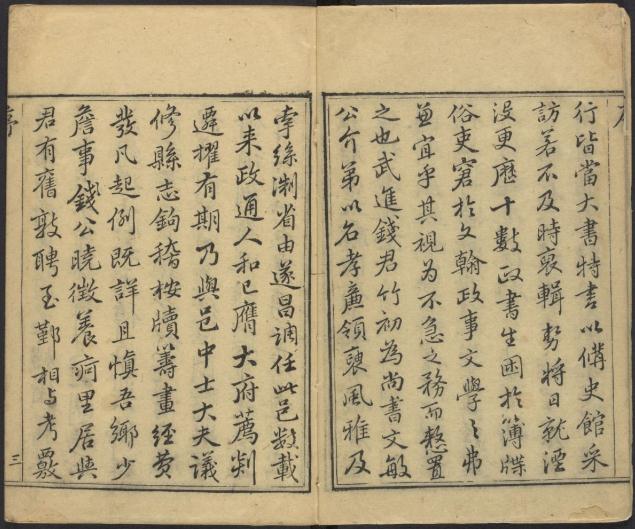 行皆當大書特書以備史館采
訪若不及時裒輯勢將日就湮
沒更歷十數政書生困於簿牒
俗吏窘於文翰政事文學之弗
兼宜乎其視為不急之務而憗置
之也武進錢君竹初為尚書文敏
公介弟以名孝廉領褎風雅及
牽絲淛省由遂昌調任此邑數載
以来政通人和已膺大府薦剡
遷擢有期乃與邑中士大夫議
修縣志鉤稽按牘籌畫經費
發凡起例既詳且慎吾鄉少
詹事錢公曉徵養疴里居與
君有舊敦聘至鄞相与考覈
三